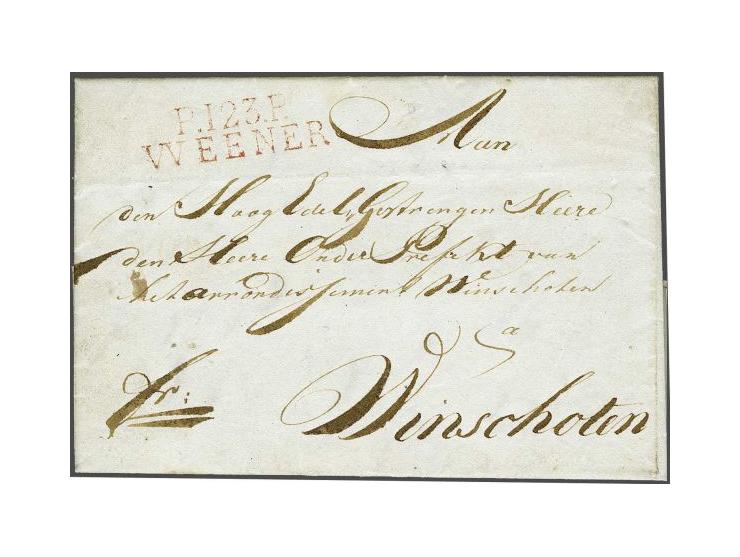 P.123.P.
WEENER
Aan
den Hoog Edel Gestrengen Heere
den Heere Onder Prefekt van
het arrondissement Winschoten
a
Winschoten
fr: